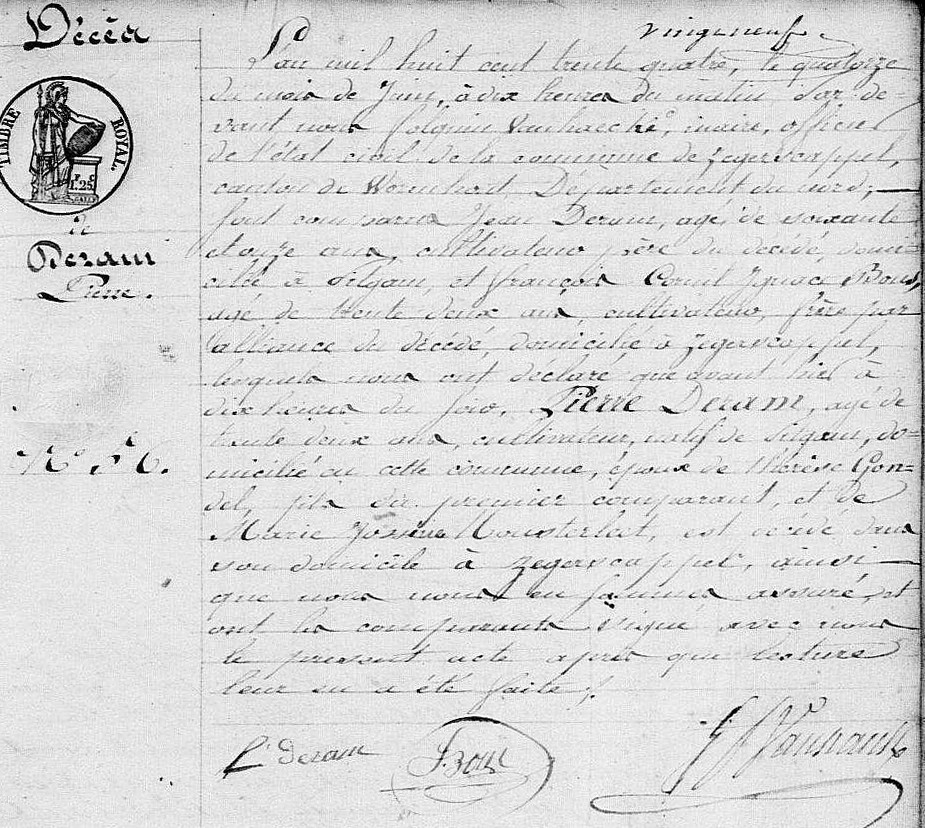 Décès
vingtneuf
TIMBRE ROYAL
1.25
de
Deram
Pierre.
N° 56.
L'an mil huit cent trente quatre, le quatorze
du mois de Juin, à dix heures du matin par de-
vant nous folquin Vanhaecke, maire, officier
de l'état civil de la commune de Zegerscappel,
canton de Wormhout Département du nord,
sont comparus Jean Deram, agé de soixante
et onze ans, cultivateur père du décédé domi-
cilié à Pitgam, et françois Cornil Ignace Bous,
agé de trente deux ans, cultivateur, frère par
alliance du décédé, domicilié à Zegerscappel,
lesquels nous ont déclaré que avant hier à
dix heures du soir, Pierre Deram, agé de
trente deux ans, cultivateur, natif de Pitgam, do-
micilié en cette commune, époux de thérèse Gon-
del, fils du premier comparant, et de
Marie Josine, est décédé dans
son domicile à Zegerscappel, ainsi
que nous nous en sommes assuré, et
ont les comparants signé avec nous
le présent acte après que lecture
leur en a été faite.
Deram